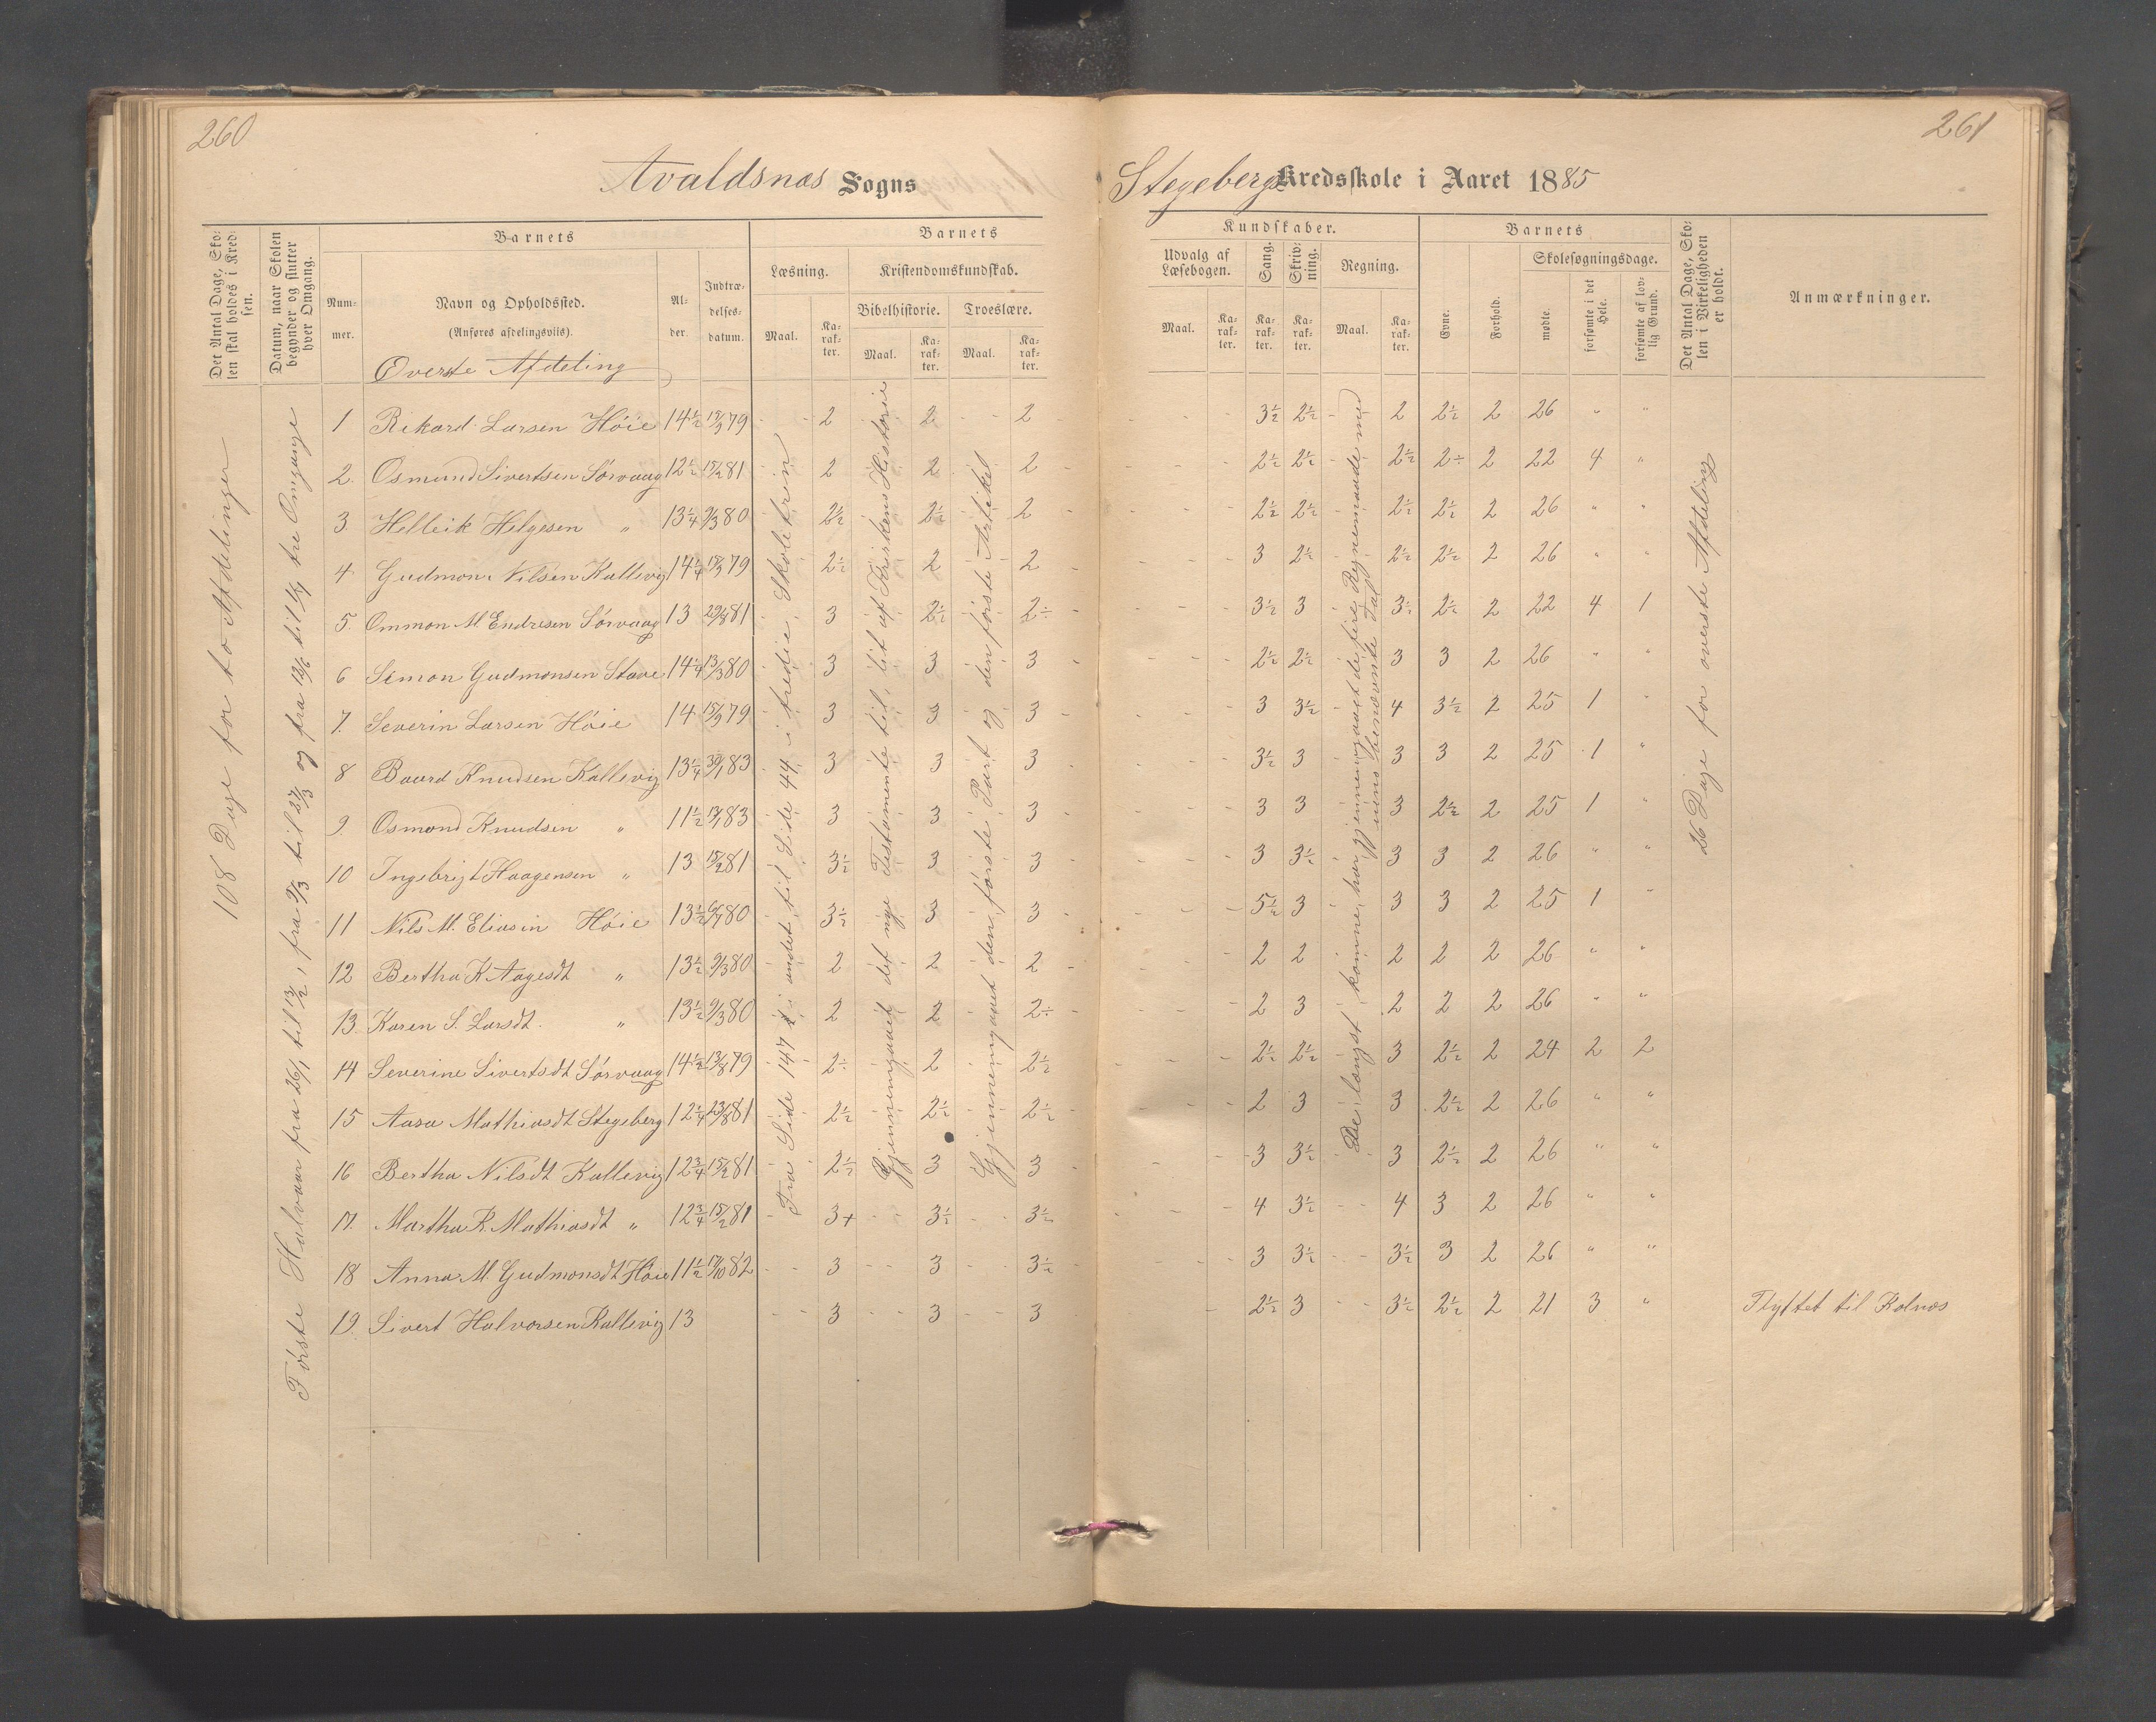 260
Avaldsnæs Sogns
Det Antal Dage, Sko-
len skal holdes i Kred-
sen.
Datum, naar Skolen
begynder og slutter
hver Omgang.
Barnets
Num-
mer.
Navn og Opholdssted.
(Anføres afdelingsviis).
Al-
der.
Indtræ-
delses-
datum.
Barnets
Læsning.
Maal.
Ka-
rak-
ter.
Kristendomskundskab.
Bibelhistorie.
Maal.
Ka-
rak-
ter.
Troeslære.
Maal.
Ka-
rak-
ter.
Øverste Afdeling
108 Dage for to Afdelinger
Første Halvaar fra 26/1 til 13/2, fra 9/3 til 27/3 og fra 12/6 til 1/7 tre Omgange
Fra Side 147 i andet til Side 44 i tredie Skoletrin
Gjennemgaaet det nye Testamente til, lit af Kirkens Historie
Gjennemgaaet den første Part og den første Artikel
1 Rikard Larsen Høie 14½ 15/3 79 2 2 2
2. Osmund Sivertsen Sørvaag 12½ 15/2 81 2 2 2
3. Helleik Helgesen „ 13¼ 9/3 80 2½ 2½ 2
4. Gudmon Nilsen Kallevig 14¼ 15/3 79 2½ 2 2
5. Ommon M. Endresen Sørvaag 13 29/8 81 3 2½ 2÷
6 Simon Gudmonsen Stave 14¼ 13/3 80 3 3 3
7. Severin Larsen Høie 14 15/9 79 3 3 3
8 Baard Knudsen Kallevig 13¼ 30/1 83 3 3 3
9. Osmond Knudsen „ 11½ 17/1 83 3 3 3
10 Ingebrigt Haagensen „ 13 15/2 81 3½ 3 3
11 Nils M. Eliasen Høie 13½ 6/7 80 3½ 3 3
12 Bertha K Aagesdt „ 13½ 9/3 80 2 2 2
13. Karen S. Larsdt. „ 13½ 9/3 80 2 2 2÷
14 Severine Sivertsdt Sørvaag 14½ 13/8 79 2÷ 2 2½
15 Aasa Mathiasdt Stegeberg 12¼ 23/8 81 2½ 2½ 2½
16 Bertha Nilsdt Kallevig 12¾ 15/2 81 2½ 3 3
17. Martha R. Mathiasdt „ 12¾ 15/2 81 3+ 3½ 3½
18 Anna M. Gudmonsdt Høie 11½ 17/10 82 3 3 3½
19. Sivert Halvorsen Kallevig 13 3 3 3
261
Stegebergs Kredsskole i Aaret 1885
Kundskaber.
Udvalg af
Læsebogen.
Maal.
Ka-
rak-
ter.
Sang.
Ka-
rak-
ter.
Skriv-
ning.
Ka-
rak-
ter.
Regning.
Maal.
Ka-
rak-
ter.
Barnets
Evne.
Forhold.
Skolesøgningsdage.
mødte.
forsømte i det
Hele.
forsømte af lov-
lig Grund.
Det Antal Dage, Sko-
len i Virkeligheden
er holdt.
Anmærkninger.
De længst komne har gjennemgaaet de fire Regnemaade med
uens benævnte Tal
26 Dage for øverste Afdeling
3½ 2½ 2 2½ 2 26 „ „
2½ 2½ 2½ 2÷ 2 22 4 „
2½ 2½ 2½ 2½ 2 26 „ „
3 2½ 2½ 2½ 2 26 „ „
3½ 3 3½ 2½ 2 22 4 1
2½ 2½ 3 3 2 26 „ „
3 3½ 4 3½ 2 25 1 „
3½ 3 3 3 2 25 1 „
3 3 3 2½ 2 25 1 „
3 3½ 3 3 2 26 „ „
5½ 3 3 3 2 25 1 „
2 2 2 2 2 26 „ „
2 3 2 2 2 26 „ „
2½ 2½ 3 2½ 2 24 2 2
2 3 3 2½ 2 26 „ „
3 3½ 3 2½ 2 26 „ „
4 3½ 4 3 2 26 „ „
3 3½ 3½ 3 2 26 „ „
2½ 3 3½ 2½ 2 21 3 „ Flyttet til Kolnæs